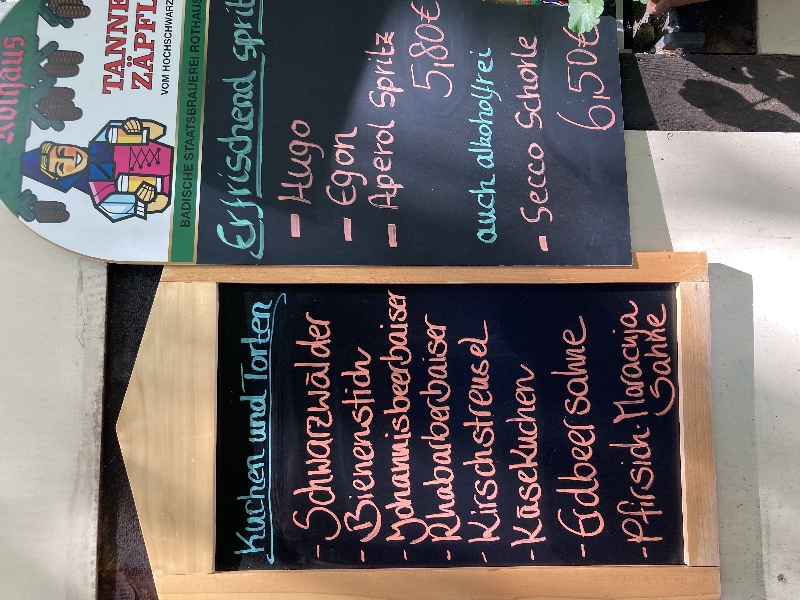 Rothaus
TANNEN
ZÄPFLE
VOM HOCHSCHWARZ
BADISCHE STAATSBRAUEREI ROTHAUS
Erfrischend sprit
- Hugo
- Egon
- Aperol Spritz
5,80€
auch alkoholfrei
- Secco Schorle
6,50€
Kuchen und Torten
- Schwarzwälder
- Bienenstich
- Johannisbeerbaiser
- Rhabarberbaiser
- Kirschstreusel
- Käsekuchen
- Erdbeersahne
- Pfirsich-Maracuja
Sahne